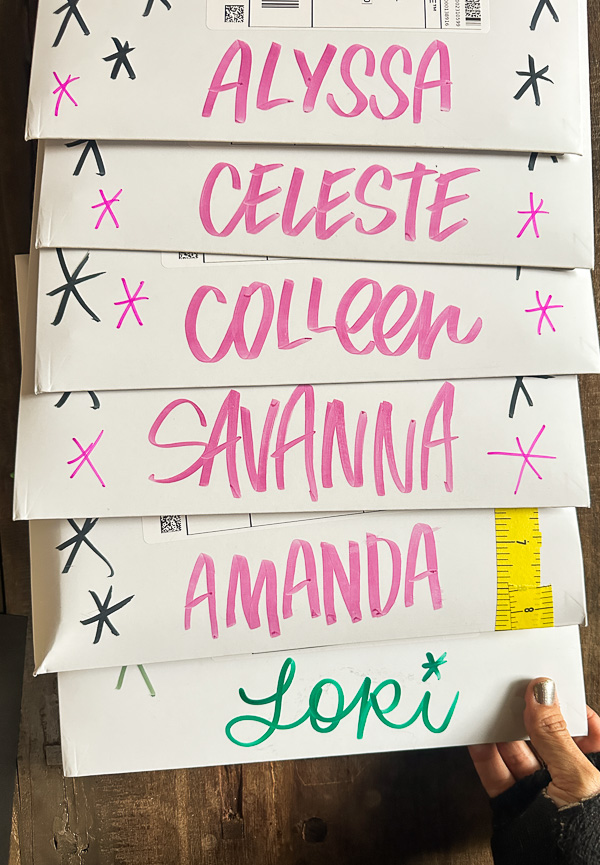 ALYSSA
CELESTE
COLLeen
SAVANNA
AMANDA
7
8
Lori